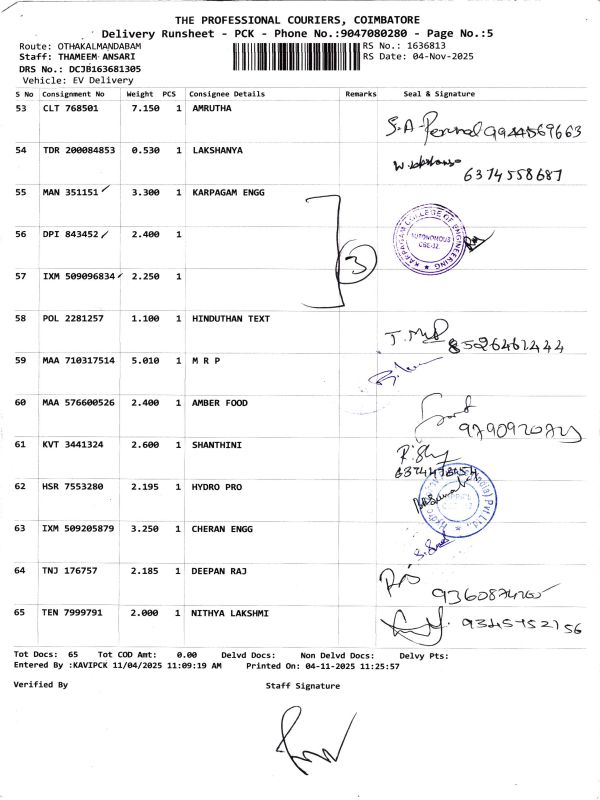 THE PROFESSIONAL COURIERS, COIMBATORE
Delivery Runsheet - PCK - Phone No.:9047080280 - Page No.:5
Route: OTHAKALMANDABAM RS No.: 1636813
Staff: THAMEEM ANSARI RS Date: 04-Nov-2025
DRS No.: DCJB163681305
Vehicle: EV Delivery
S No Consignment No Weight PCS Consignee Details Remarks Seal & Signature
53 CLT 768501 7.150 1 AMRUTHA
9944569663
54 TDR 200084853 0.530 1 LAKSHANYA
6374558687
55 MAN 351151 3.300 1 KARPAGAM ENGG
56 DPI 843452 2.400 1
KARPAGAM COLLEGE OF ENGINEERING
AUTONOMOUS
CBE-32
3
57 IXM 509096834 2.250 1
58 POL 2281257 1.100 1 HINDUTHAN TEXT
8526461444
59 MAA 710317514 5.010 1 M R P
60 MAA 576600526 2.400 1 AMBER FOOD
61 KVT 3441324 2.600 1 SHANTHINI
62 HSR 7553280 2.195 1 HYDRO PRO
63 IXM 509205879 3.250 1 CHERAN ENGG
64 TNJ 176757 2.185 1 DEEPAN RAJ
65 TEN 7999791 2.000 1 NITHYA LAKSHMI
Tot Docs: 65 Tot COD Amt: 0.00 Delvd Docs: Non Delvd Docs: Delvy Pts:
Entered By :KAVIPCK 11/04/2025 11:09:19 AM Printed On: 04-11-2025 11:25:57
Verified By Staff Signature